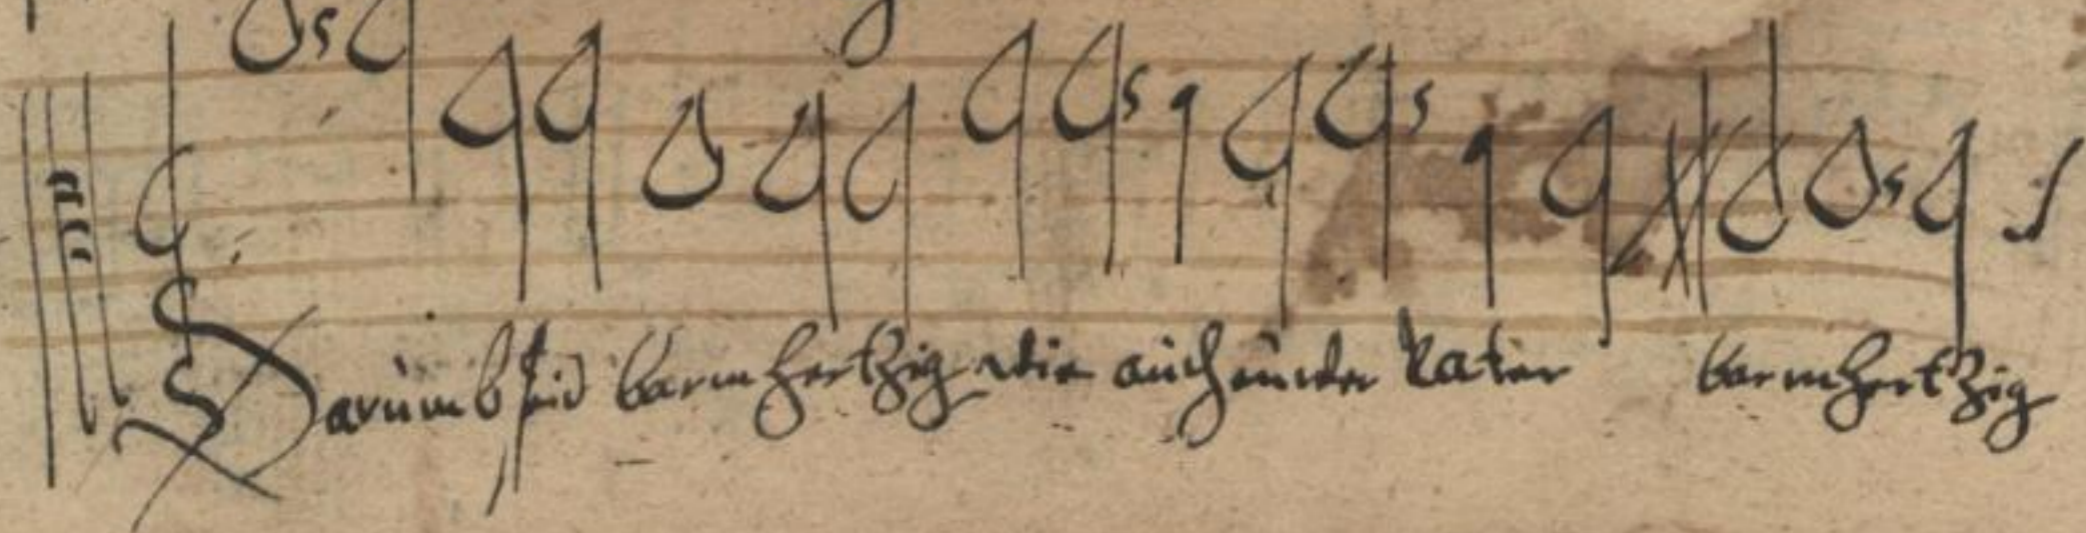 Darumb seid barmhertzig wie auch euwer Vater barmhertzig